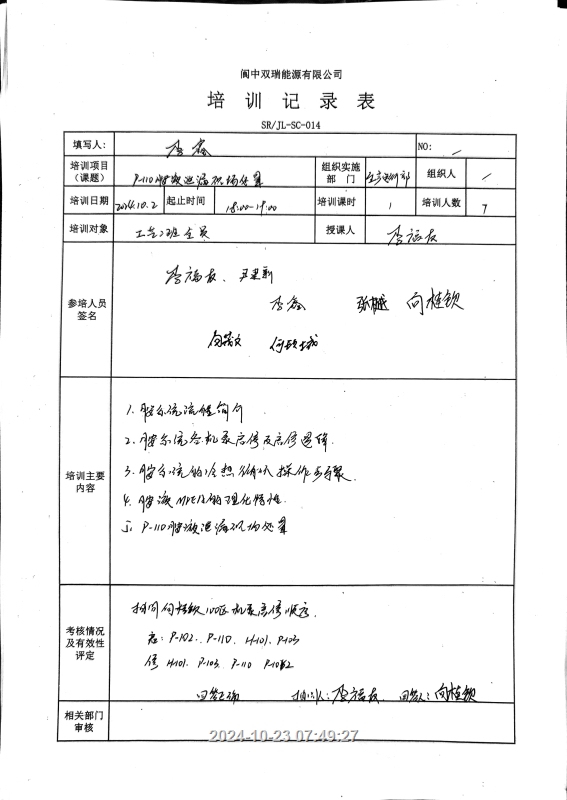 阆中双瑞能源有限公司
培训记录表
SR/JL-SC-014
填写人： 李鑫 NO: /
培训项目（课题） P-110胺液泄漏现场处置 组织实施部门 生产运行部 组织人 /
培训日期 2024.10.2 起止时间 18:00-19:00 培训课时 1 培训人数 7
培训对象 工艺班全员 授课人 李福友
参培人员签名
李福友、
李鑫 向桂钦
培训主要内容
1. 胺系统流程简介
2. 胺系统各机泵启停及启停逻辑
3. 胺系统的冷热循环操作步骤
4. 胺液MDEA的理化特性
5. P-110胺液泄漏现场处置
考核情况及有效性评定
提问向桂钦100区机泵启停顺序
启: P-102. P-110. H-101. P-103
停 H-101. P-103. P-110 P-102
回答正确 提问人: 李福友 回答人: 向桂钦
相关部门审核
2024-10-23 07:49:27